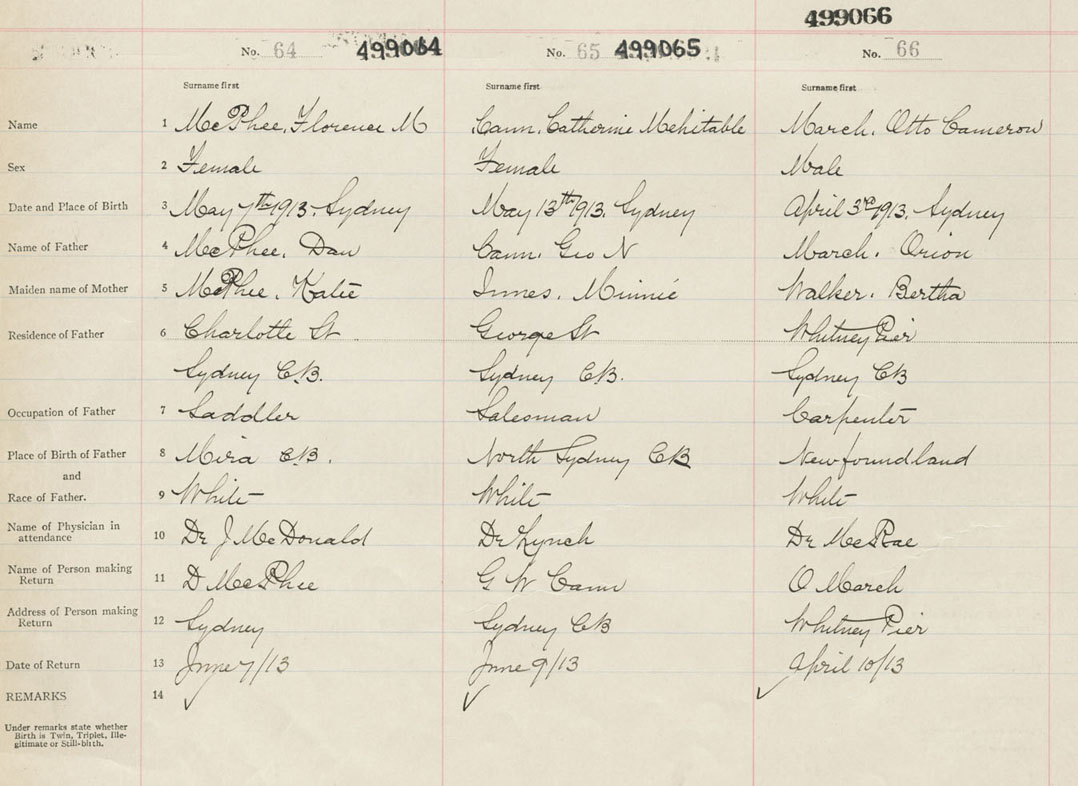 499066
No. 64 499064 No. 65 499065 No. 66
Surname first Surname first Surname first
Name 1 McPhee, Florence M Cann, Catherine Mehitable March, Otto Cameron
Sex 2 Female Female Male
Date and Place of Birth 3 May 7th 1913, Sydney May 13th 1913, Sydney April 3rd 1913, Sydney
Name of Father 4 McPhee, Dan Cann, Geo N March, Orion
Maiden name of Mother 5 McPhee, Katie Innes, Minnie Walker, Bertha
Residence of Father 6 Charlotte St George St Whitney Pier
Sydney C.B. Sydney C.B. Sydney CB
Occupation of Father 7 Saddler Salesman Carpenter
Place of Birth of Father 8 Mira C.B. North Sydney CB Newfoundland
and
Race of Father. 9 White White White
Name of Physician in
attendance 10 Dr J McDonald Dr Lynch Dr McRae
Name of Person making
Return 11 D McPhee G W Cann O March
Address of Person making
Return 12 Sydney Sydney CB Whitney Pier
Date of Return 13 June 7/13 June 9/13 April 10/13
REMARKS 14 ✓ ✓ ✓
Under remarks state whether
Birth is Twin, Triplet, Ille-
gitimate or Still-birth.